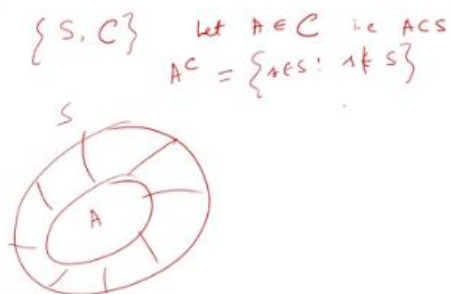 {S, C} Let A ∈ C i.e A ⊂ S
A^C = {s ∈ S : s ∉ S}
S
A